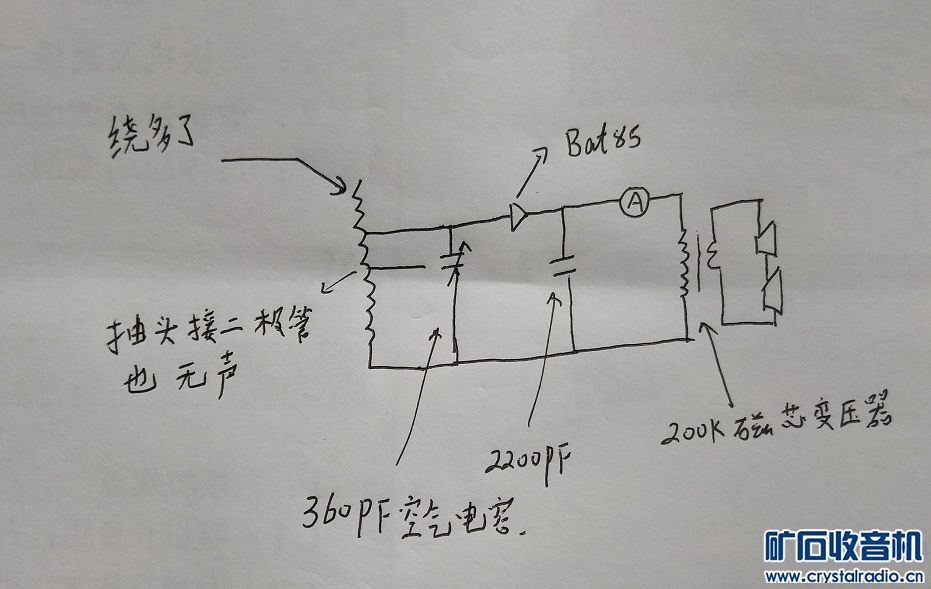 绕多了
Bat85
A
抽头接二极管
也无声
360PF空气电容.
2200PF
200K磁芯变压器
矿石收音机
www.crystalradio.cn